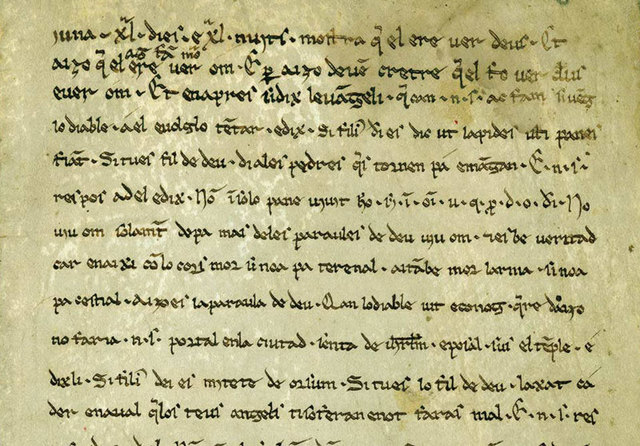 iuna · xl · dies · e xl · nuits · mostra q̄ el ere ver deus · Et
ag fā mo
aizo q̄ el ere ver om · E ꝑ aizo devē creire q̄l fo ver deus
e ver om · Et enapres nͥ dix levāgeli · q̄ can · n · s · ac fam si vēg
lo diable · a el e volg lo tētar · e dix · Si fili dei es dic ut lapides isti panes
fiāt · Si tu es fil de deu · di a les pedres q̄s tornen pa e mā gan · E · n · s ·
respos ad el e dix · Nō ī solo pane vivit ho · s · ī · oī · v · q · p · d · o · di · No
viu om solamēt de pa mas de les paraules de deu viu om · ies be veritad
car en aixi cō lo cors mor si no a pa terenal · aitābe mor larma · si no a
pa celestial · Aizo es la paraula de deu · Qan lo diable vit e conog · q̄ re daizo
no faria · n · s · portal en la ciutad · sēnta de ihrlm · e poial · sus el tēple · e
dix li · Si fili dei es mitete de orsum · Si tu es lo fil de deu · laxat ca
der en aval q̄ los teus angels ti sosteran e not faras mal · E · n · s · res